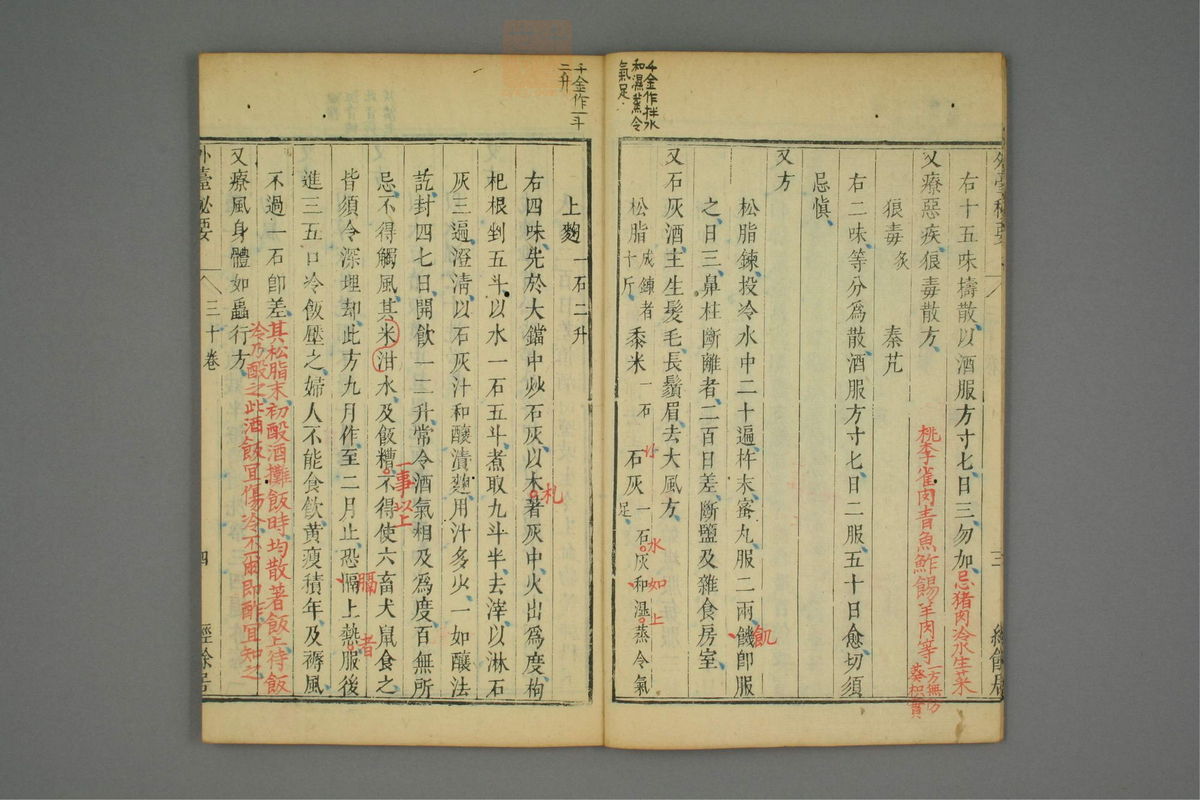 千金作拌水
和濕蒸令
氣足
外臺秘要
三
經餘居
右十五味擣散以酒服方寸匕日三勿加忌猪肉冷水生菜
桃李雀肉青魚鮓餳羊肉等一方無
葵根實
又療惡疾狼毒散方
狼毒炙 秦芃
右二味等分為散酒服方寸匕日二服五十日愈切須
忌慎
又方
松脂鍊投冷水中二十遍杵末蜜丸服二兩饑即服
飢
之日三鼻柱斷離者二百日差斷鹽及雜食房室
又石灰酒主生髮毛長鬚眉去大風方
松脂十斤成鍊者 黍米一石 石灰一石灰和濕蒸令氣足
水如上
千金作一斗
二升
上麴一石二升
右四味先於大鐺中炒石灰以木著灰中火出為度枸
札
杞根剉五斗以水一石五斗煮取九斗半去滓以淋石
灰三遍澄清以石灰汁和釀漬麴用汁多少一如釀法
訖封四七日開飲一二升常令酒氣相及為度百無所
忌不得觸風其米泔水及飯糟不得使六畜犬鼠食之
一事以上
皆須令深埋却此方九月作至二月止恐膈上熱服後
膈
者
進三五口冷飯壓之婦人不能食飲黄瘦積年及褥風
不過一石即差其松脂末初酘酒攤飯時均散著飯上待飯
冷乃酘之此酒飯宜傷冷不爾即酢宜知之
又療風身體如蟲行方
外臺秘要
三十卷
四
經餘居